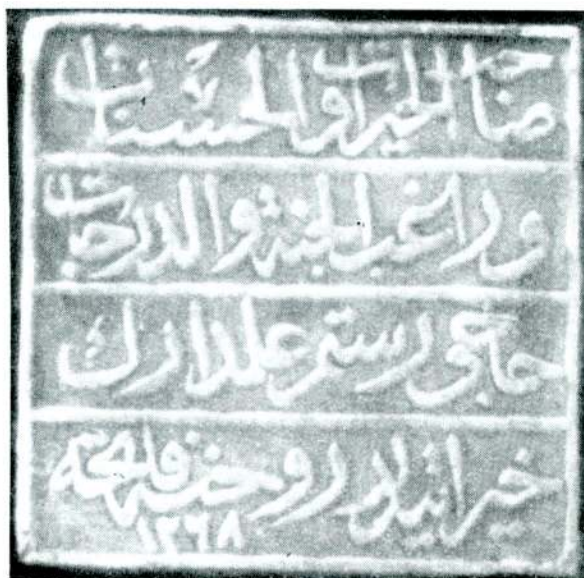 صاحب الخيرات والحسنات
وراغب الجنة والدرجات
حاجى
خيراتيدر روحنه فاتحه
١٢٦٨